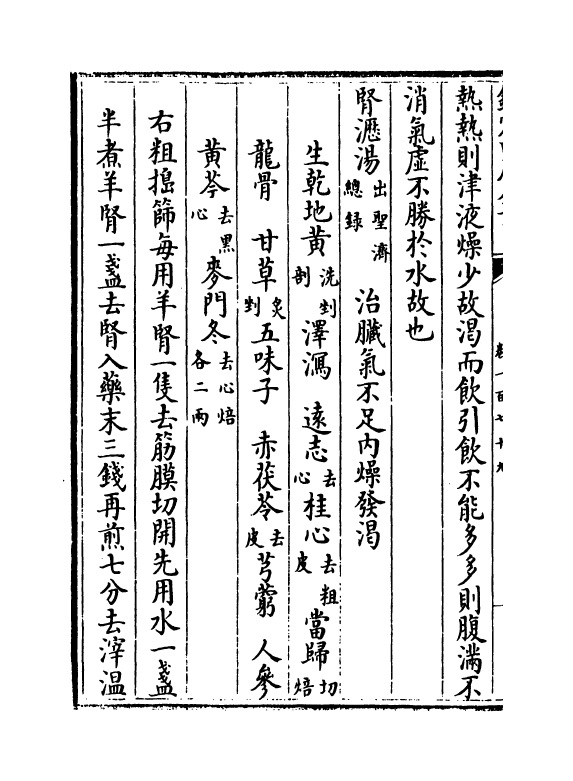 熱熱則津液燥少故渴而飲引飲不能多多則腹滿不
消氣虛不勝於水故也
腎瀝湯出聖濟總録　治臟氣不足内燥發渴
生乾地黄洗剉剖　澤瀉　遠志去心　桂心去粗皮　當歸切焙
龍骨　甘草炙剉　五味子　赤茯苓去皮　芎藭　人參
黄芩去黒心　麥門冬去心焙各二兩
右粗搗篩每用羊腎一隻去筋膜切開先用水一盞
半煮羊腎一盞去腎入藥末三錢再煎七分去滓温
卷一百七十九